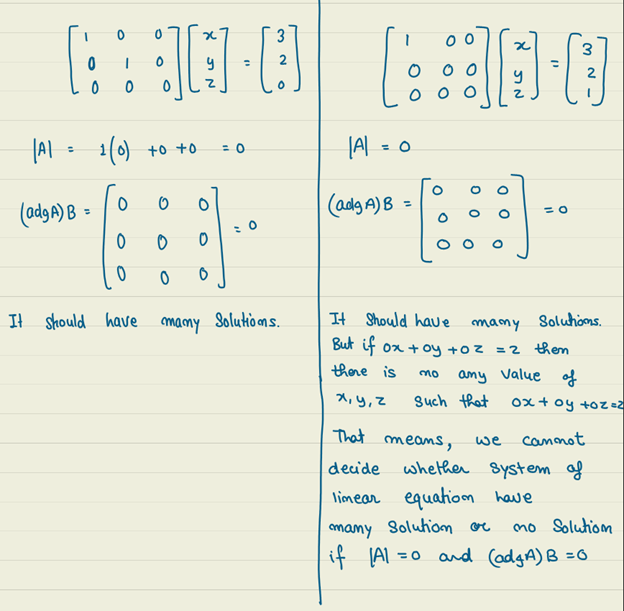 [1 0 0; 0 1 0; 0 0 0] [x; y; z] = [3; 2; 0]
|A| = 1(0) +0 +0 = 0
(adgA)B = [0 0 0; 0 0 0; 0 0 0] = 0
It should have many Solutions.
[1 0 0; 0 0 0; 0 0 0] [x; y; z] = [3; 2; 1]
|A| = 0
(adgA)B = [0 0 0; 0 0 0; 0 0 0] = 0
It Should have many Solutions.
But if 0x + 0y + 0z = 2 then
there is no any value of
x, y, z such that 0x + 0y + 0z = 2
That means, we cannot
decide whether System of
linear equation have
many Solution or no Solution
if |A| = 0 and (adgA)B = 0